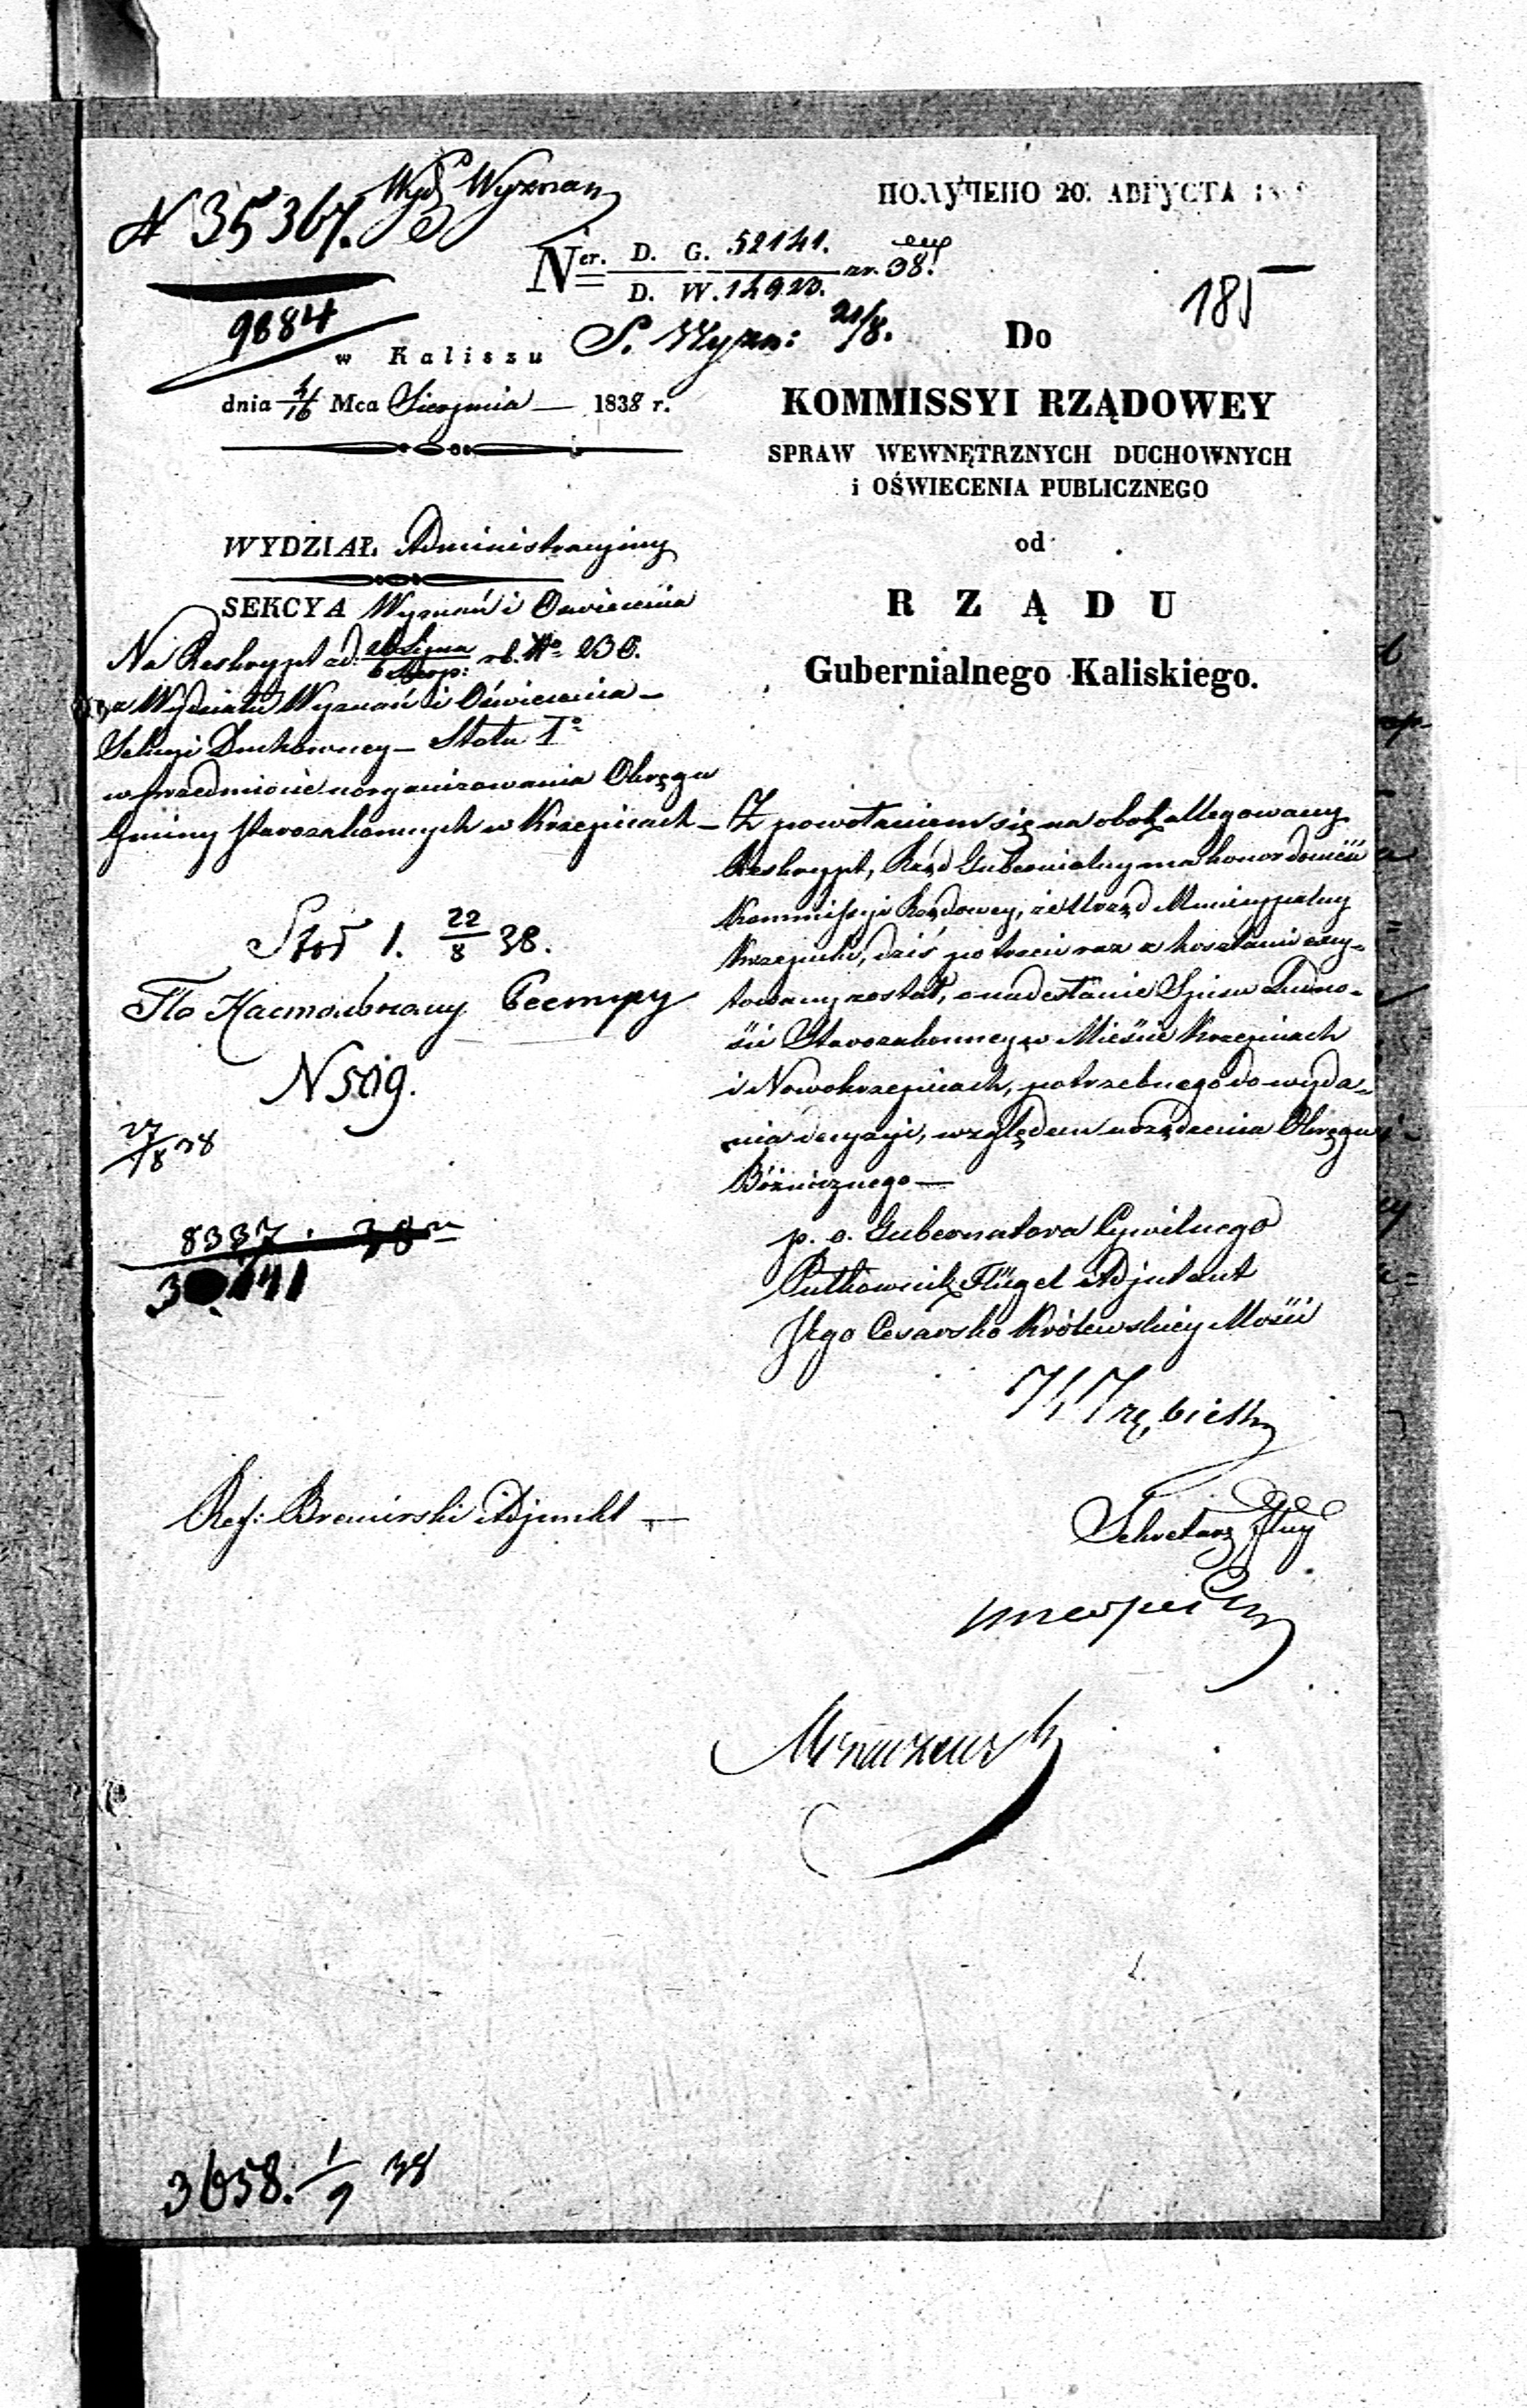 N 35367. Wyd. Wyznań
ПОЛУЧЕНО 20. АВГУСТА
9884
Ner. D. G. 52141.
D. W. 14923. nr. 38.
185
S. Wyzn: 21/8.
w Kaliszu
dnia 4/16 Mca Sierpnia — 1838 r.
Do
KOMMISSYI RZĄDOWEY
SPRAW WEWNĘTRZNYCH DUCHOWNYCH
i OŚWIECENIA PUBLICZNEGO
od
RZĄDU
Gubernialnego Kaliskiego.
WYDZIAŁ Administracyjny
SEKCYA Wyznań i Oświecenia
Na Reskrypt z d. 26 Lipca / 6 Sierp: rb. No
z Wydziału Wyznań i Oświecenia —
Sekcyi Duchowney — Stołu 1o
w przedmiocie uorganizowania Okręgu
Gminy Starozakonnych w Krzepicach —
Stół 1. 22/8 38.
По Настольному Реестру
N 509.
27/8 38
8337. 38
3658. 1/9 38
Z powołaniem się na obok allegowany
Reskrypt, Rząd Gubernialny ma honor donieść
Kommissyi Rządowey, że Urząd Municypalny
Krzepicki, dziś po trzeci raz z kosztami excy-
towany został, o nadesłanie Spisu Ludno-
ści Starozakonney w Mieście Krzepicach
i Nowokrzepicach, potrzebnego do wyda-
nia decyzyi, względem urządzenia Okręgu
Bóżniczego —
p. o. Gubernatora Cywilnego
Pułkownik Flügel Adjutant
Jego Cesarsko Królewskiey Mości
Trębicki
Sekretarz Jlny
Ref: Adjunkt —